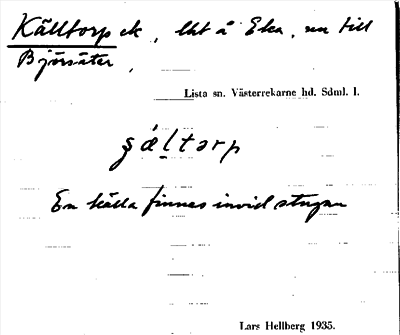 Källtorp ck, lht å Eka, nu till
Björsäter,
Lista sn. Västerrekarne hd. Sdml. l.
En källa finnes invid stugan
Lars Hellberg 1935.